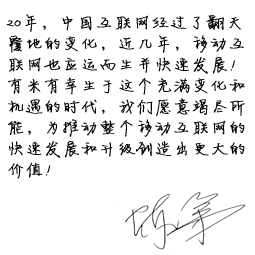 20年，中国互联网经过了翻天
覆地的变化，近几年，移动互
联网也应运而生并快速发展！
有米有幸生于这个充满变化和
机遇的时代，我们愿意竭尽所
能，为推动整个移动互联网的
快速发展和升级创造出更大的
价值！